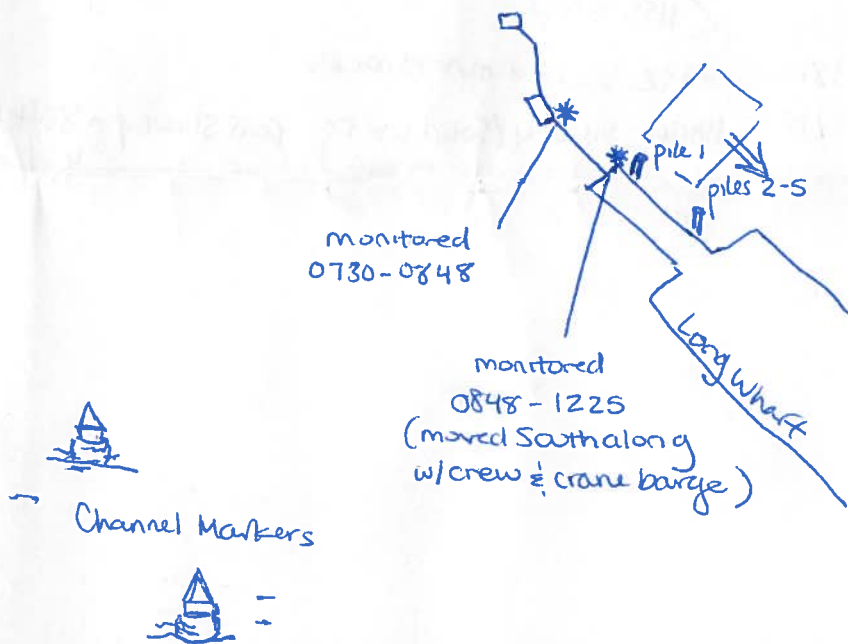 pile 1
piles 2-5
monitored
0730-0848
monitored
0848-1225
(moved South along
w/crew & crane barge)
Long Wharf
Channel Markers